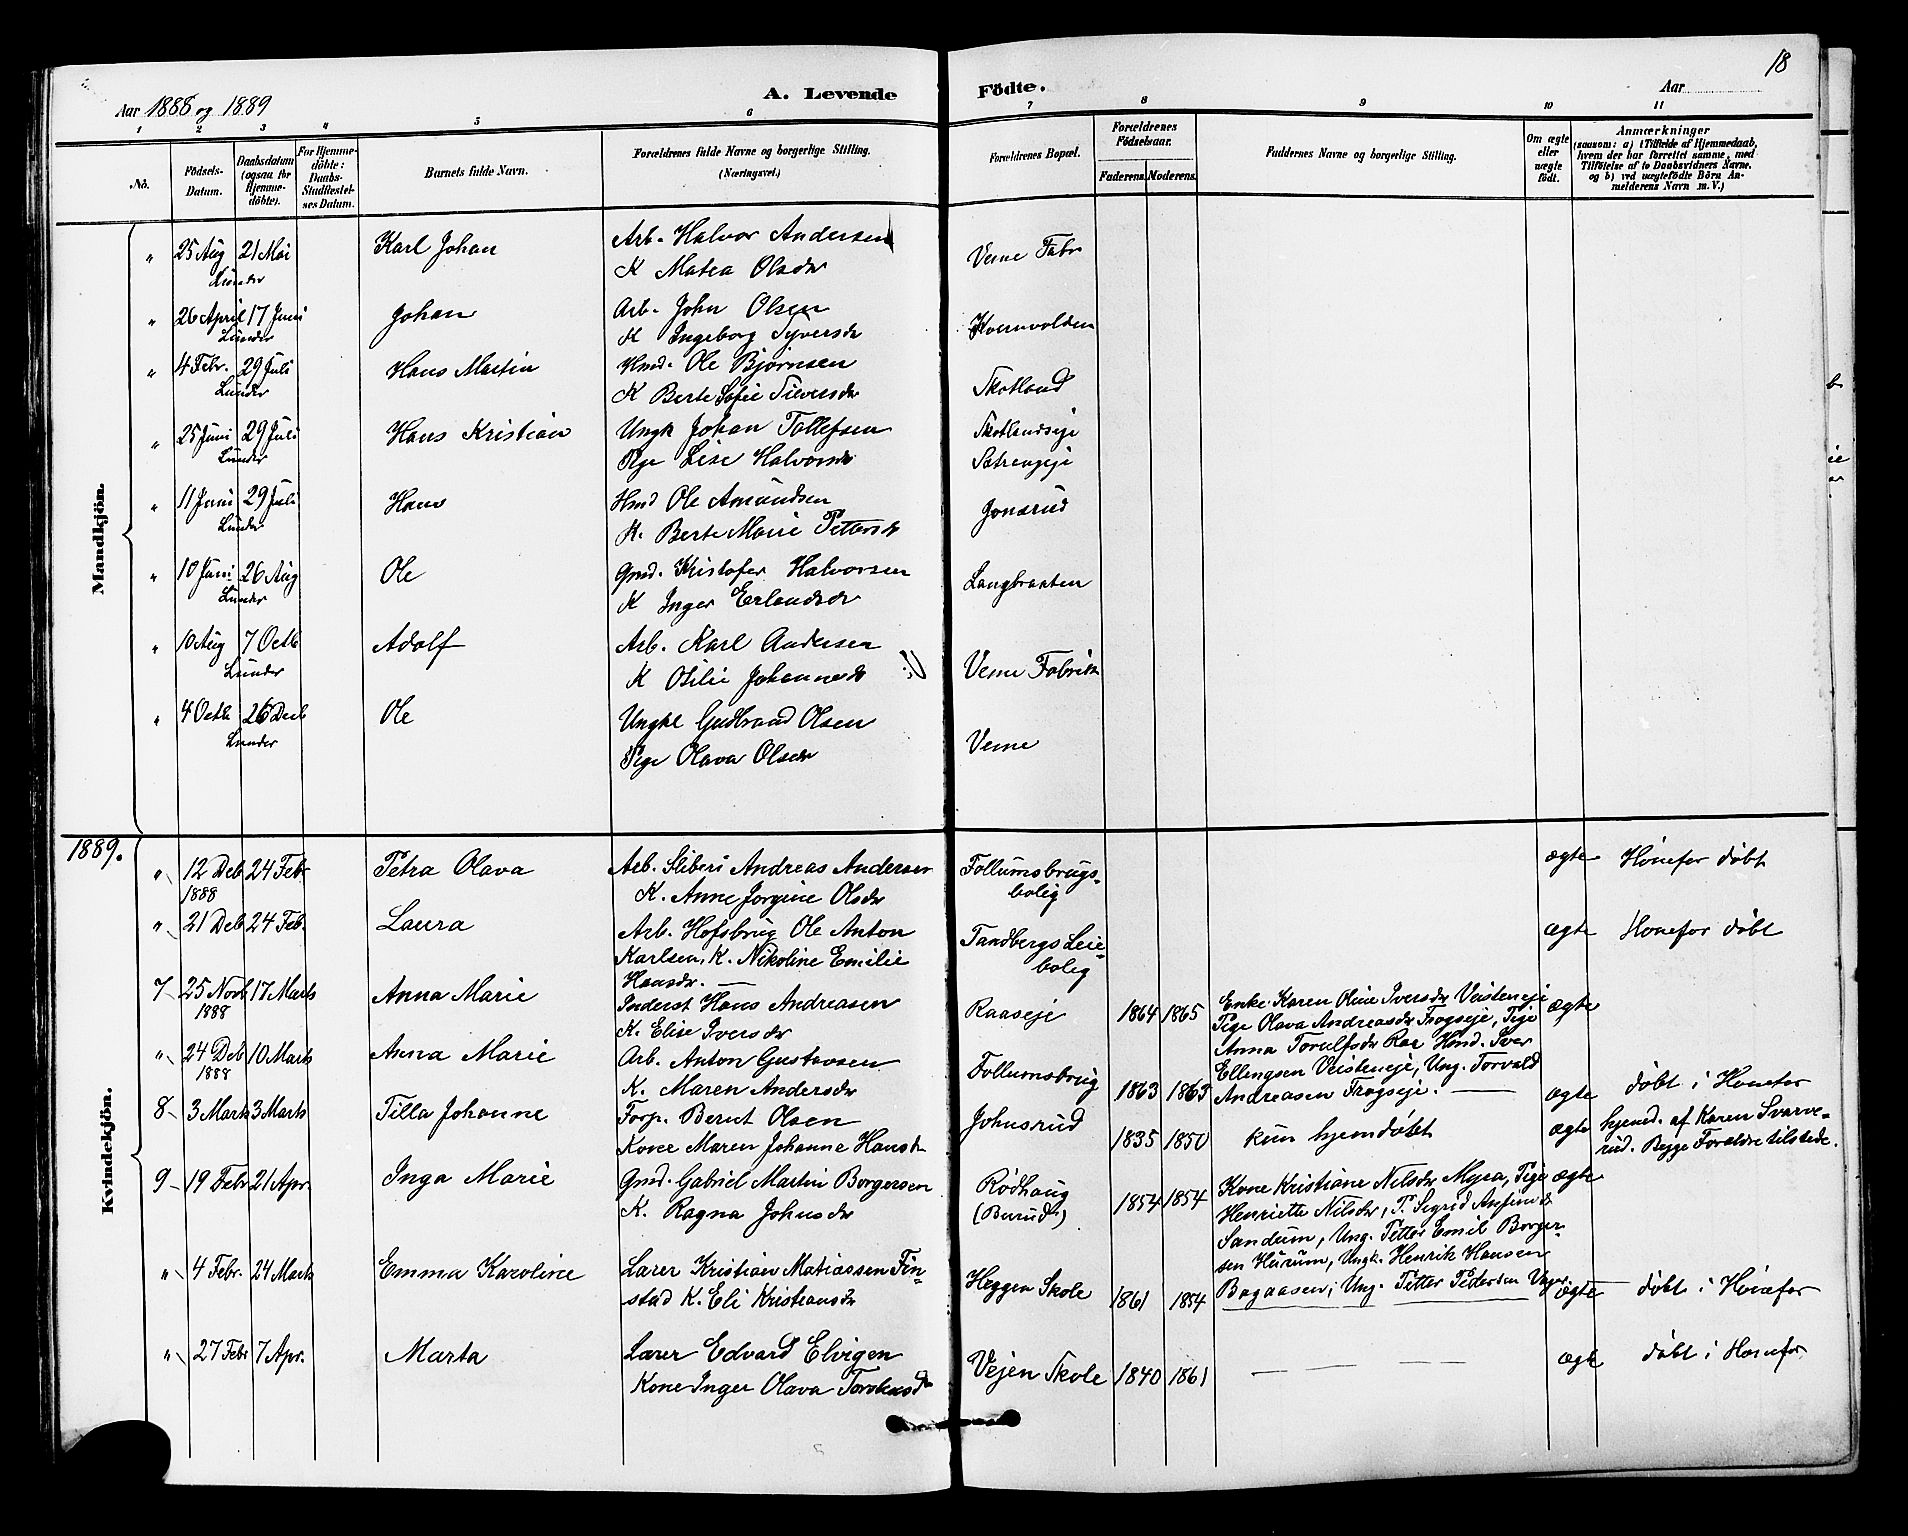 18
Aar 1888 og 1889
A. Levende Födte.
Aar
1 2 3 4 5 6 7 8 9 10 11
No.
Födsels-Datum.
Daabsdatum (ogsaa for Hjemme-döbte).
For Hjemme-döbte: Daabs-Stadfæstel-ses Datum.
Barnets fulde Navn.
Forældrenes fulde Navne og borgerlige Stilling. (Næringsvei.)
Forældrenes Bopæl.
Forældrenes Födselsaar.
Faderens. Moderens.
Faddernes Navne og borgerlige Stilling.
Om ægte eller uægte födt.
Anmærkninger (saasom: a) i Tilfælde af Hjemmedaab, hvem der har forrettet samme, med Tilföielse af to Daabsvidners Navne, og b) ved uægtefödte Börn Anmelderens Navn m. V.)
Mandkjön.
" 25 Aug 21 Mai Karl Johan Arb. Halvor Andersen
Lunder K Matea Olsdr Veme Fabr
" 26 April 17 Juni Johan Arb. John Olsen
Lunder K Ingeborg Syversdr Kvernvolden
" 4 Febr. 29 Juli Hans Martin Hmd. Ole Bjørnsen
Lunder K Berte Sofie Sieversdr Skotland
" 25 Juni 29 Juli Hans Kristian Ungk Johan Tollefsen Skotlandseje
Lunder Pge Lise Halvorsdr Sætrangeje
" 11 Juni 29 Juli Hans Hmd Ole Amundsen Jonsrud
Lunder K. Berte Marie Pettersdr
" 10 Juni 26 Aug Ole Gmd. Kristofer Halvorsen Langbraaten
Lunder K Inger Erlandsdr
" 10 Aug 7 Octb Adolf Arb. Karl Andersen
Lunder K Otilie Johannesdr Veme Fabrik
" 4 Octb 26 Decb Ole Ungkl Gudbrand Olsen
Lunder Pge Olava Olsdr Veme
1889.
Kvindekjön.
" 12 Deb 24 Febr Petra Olava Arb. Sliberi Andreas Andersen Follumsbrugs- ægte Hønefos døbt
1888 K. Anne Jørgine Olsdr bolig
" 21 Deb 24 Feb. Laura Arb. Hofsbrug Ole Anton Tandbergs Leie- ægte Hønefos døbt
Karlsen, K. Nikoline Emilie bolig
Hansdr.
7 25 Novb 17 Marts Anna Marie Inderst Hans Andreasen Raaseje 1864 1865 Enke Karen Oline Iversdr Veisteneje ægte
1888 K. Elise Iversdr Pige Olava Andreasdr Frogseje, Pige
Anna Torulfsdr Raa Hmd. Iver
" 24 Deb 10 Marts Anna Marie Arb. Anton Gustavsen Follumsbrug Ellingsen Veisteneje, Ung. Torvald
1888 K. Maren Andersdr 1863 1863 Andreasen Frogseje. ægte døbt i Hønefos
8 3 Marts 3 Marts Tilla Johanne Forp. Bernt Olsen Johnsrud
Kone Maren Johanne Hansdr 1835 1850 kun hjemdøbt ægte hjemd. af Karen Svarve-
rud. Begge Forældre tilstede.
9 19 Febr 21 Apr. Inga Marie Gmd. Gabriel Martin Borgersen Rødhaug 1854 1854 Kone Kristiane Nilsdr Myra, Pige ægte
K. Ragna Johnsdr (Burud) Henriette Nilsdr, P. Sigrid Anfinsdr
Sandum, Ung. Petter Emil Borger-
sen Hurum, Ungk. Henrik Hansen
" 4 Febr. 24 Marts Emma Karoline Lærer Kristian Matiassen Fin- Heggen Skole Bagaasen, Ung. Petter Pedersen
stad K. Eli Kristiansdr 1861 1854 ægte døbt i Hønefos
" 27 Febr 7 Apr. Marta Lærer Edvard Elvigen Vejen Skole 1840 1861 ægte døbt i Hønefos
Kone Inger Olava